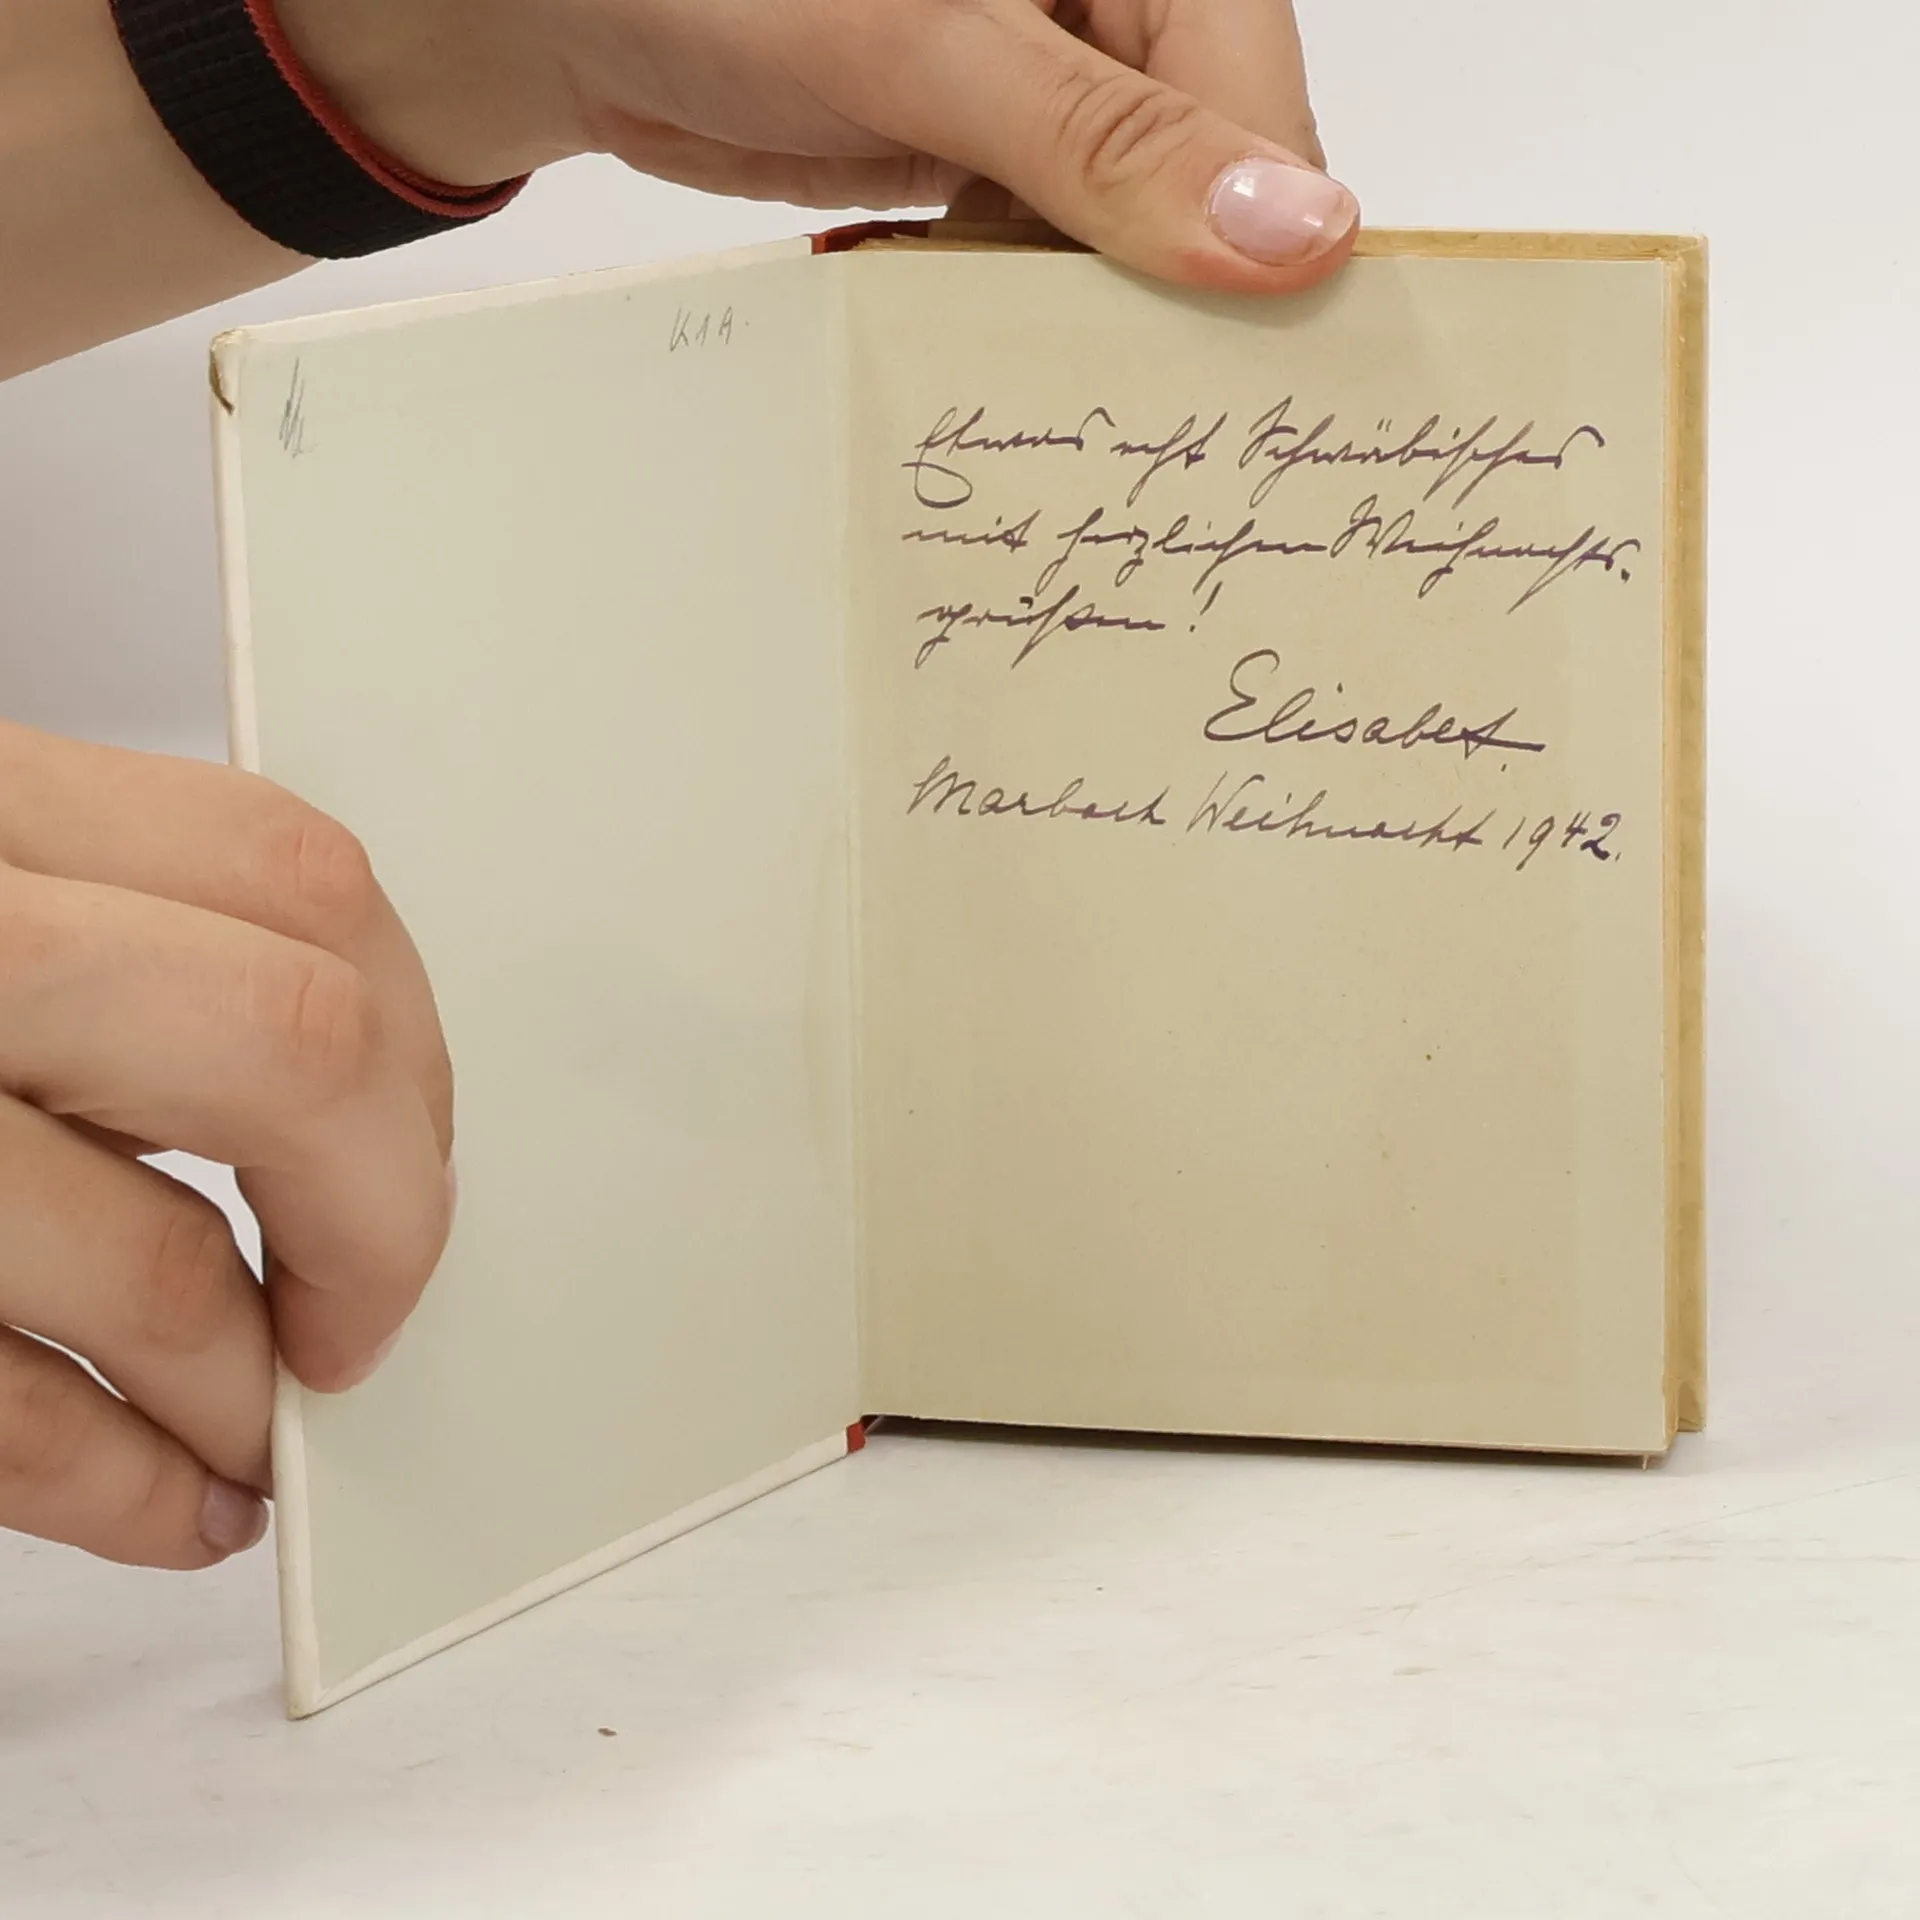 K 1 A.
Etwas echt Schwäbisches
mit herzlichen Weihnachts-
grüßen!
Elisabet.
Marbach Weihnacht 1942.